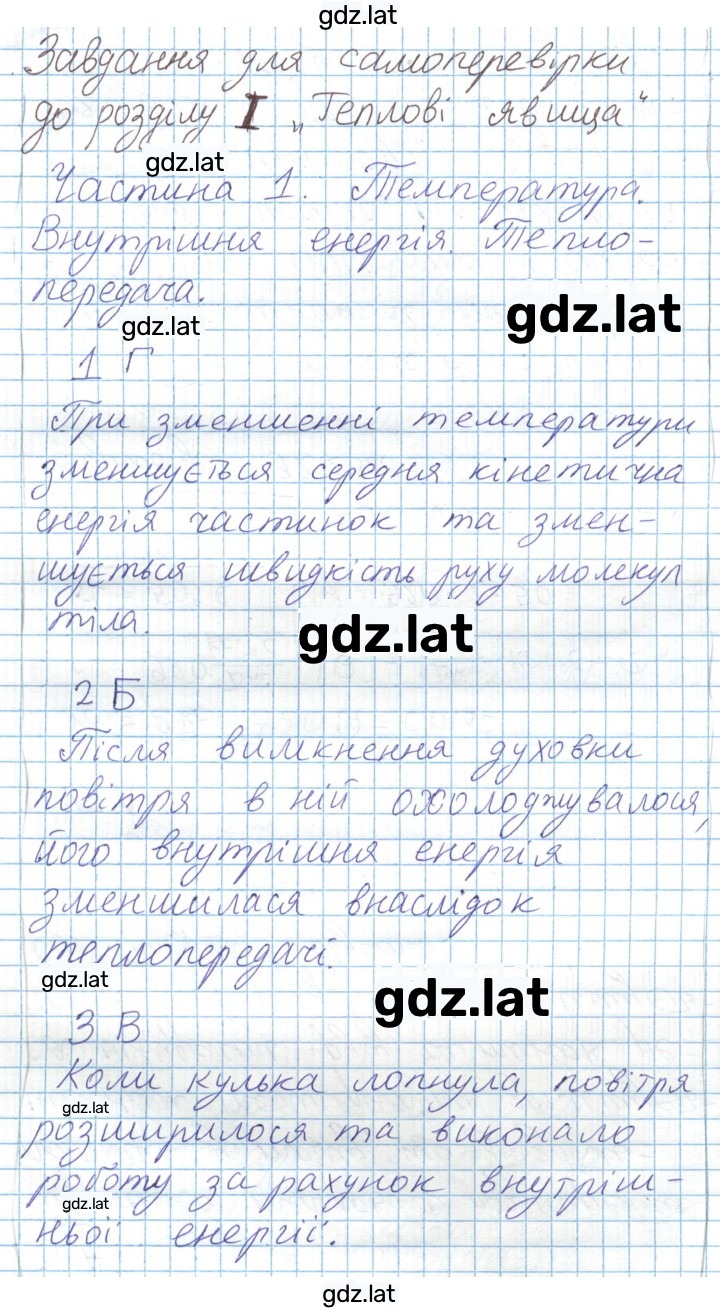 gdz.lat
Завдання для самоперевірки
до розділу I „Теплові явища“
gdz.lat
Частина 1. Температура.
Внутрішня енергія. Тепло-
передача.
gdz.lat
gdz.lat
1 Г
При зменшенні температури
зменшується середня кінетична
енергія частинок та змен-
шується швидкість руху молекул
тіла.
gdz.lat
2 Б
Після вимкнення духовки
повітря в ній охолоджувалося,
його внутрішня енергія
зменшилася внаслідок
теплопередачі.
gdz.lat
gdz.lat
3 В
Коли кулька лопнула, повітря
gdz.lat
розширилося та виконало
роботу за рахунок внутріш-
gdz.lat
ньої енергії.
gdz.lat